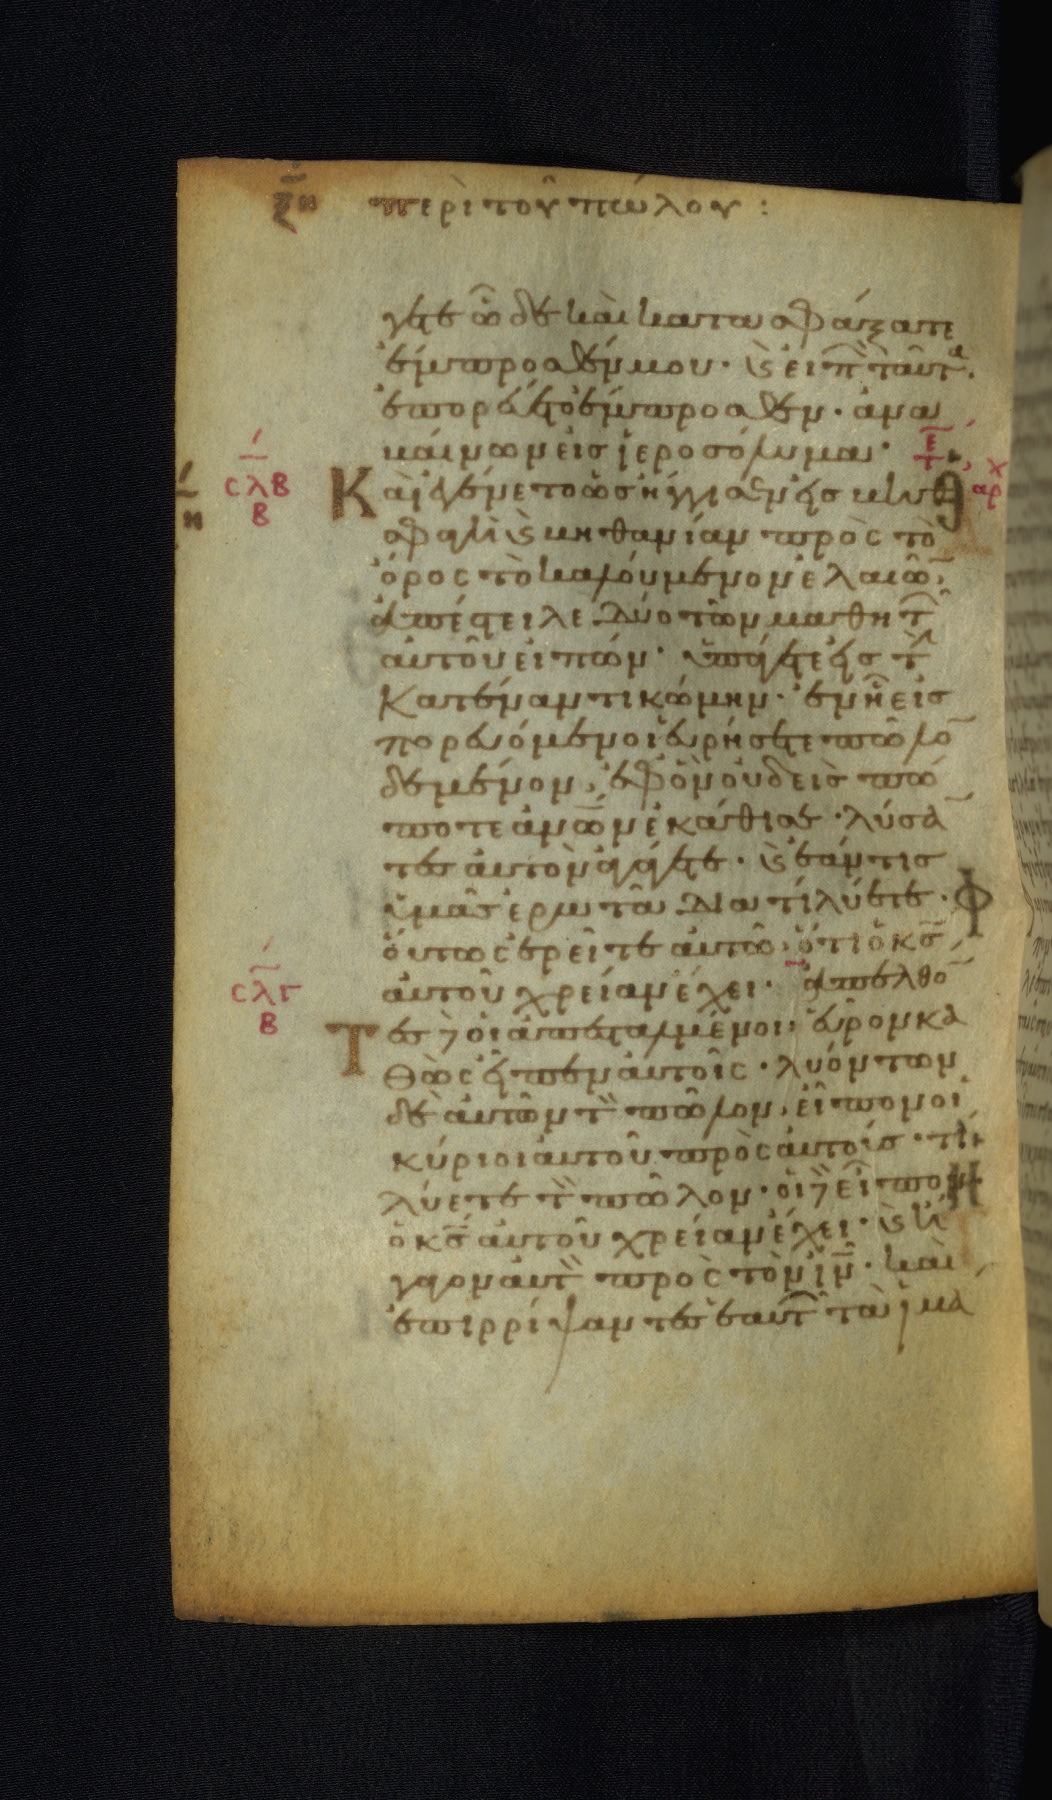 ξη περὶ τοῦ πώλου :
γετε ὧδε καὶ κατασφάξατε
ἔμπροσθέν μου · ϗ εἰπ ταῦτα
ἐπορεύετο ἔμπροσθεν · ἀνα
βαίνων εἰς ἱεροσόλυμα ·
σλβ β Καὶ ἐγένετο ὡς ἤγγισεν εἰς
σφαγὴ ϗ βηθανίαν πρὸς τὸ
ὄρος τὸ καλούμενον ἐλαιῶ
ἀπέστειλε δύο τῶν μαθητ
αὐτοῦ εἰπών · ὑπάγετε εἰς τ
κατέναντι κώμην · ἐν ἧ εἰσ
πορευόμενοι εὑρήσετε πῶλο
δεμένον, ἐφ ὃν οὐδεὶς πώ
ποτε ἀνων ἐκάθισε · λύσα
τες αὐτὸν ἀγάγετε · ϗ ἐάν τις
ὑμᾶς ἐρωτᾶ διατί λύετε ·
οὕτως ἐρεῖτε αὐτῶ · ὅτι ὁ κς
αὐτοῦ χρείαν ἔχει · ἀπελθό
σλγ β Τες δὲ οἱ ἀπεσταλμένοι εὗρον κα
θὼς εἶπεν αὐτοῖς · λυόντων
δὲ αὐτῶν τὸν πῶλον, εἶπον οἱ
κύριοι αὐτοῦ πρὸς αὐτούς · τί
λύετε τὸν πῶλον · οἱ δὲ εἶπον
ὁ κς αὐτοῦ χρείαν ἔχει · ϗ ἤ
γαγον αὐτὸν πρὸς τὸν ιν · καὶ
ἐπιρρίψαντες ἑαυτ τὰ ἱμα